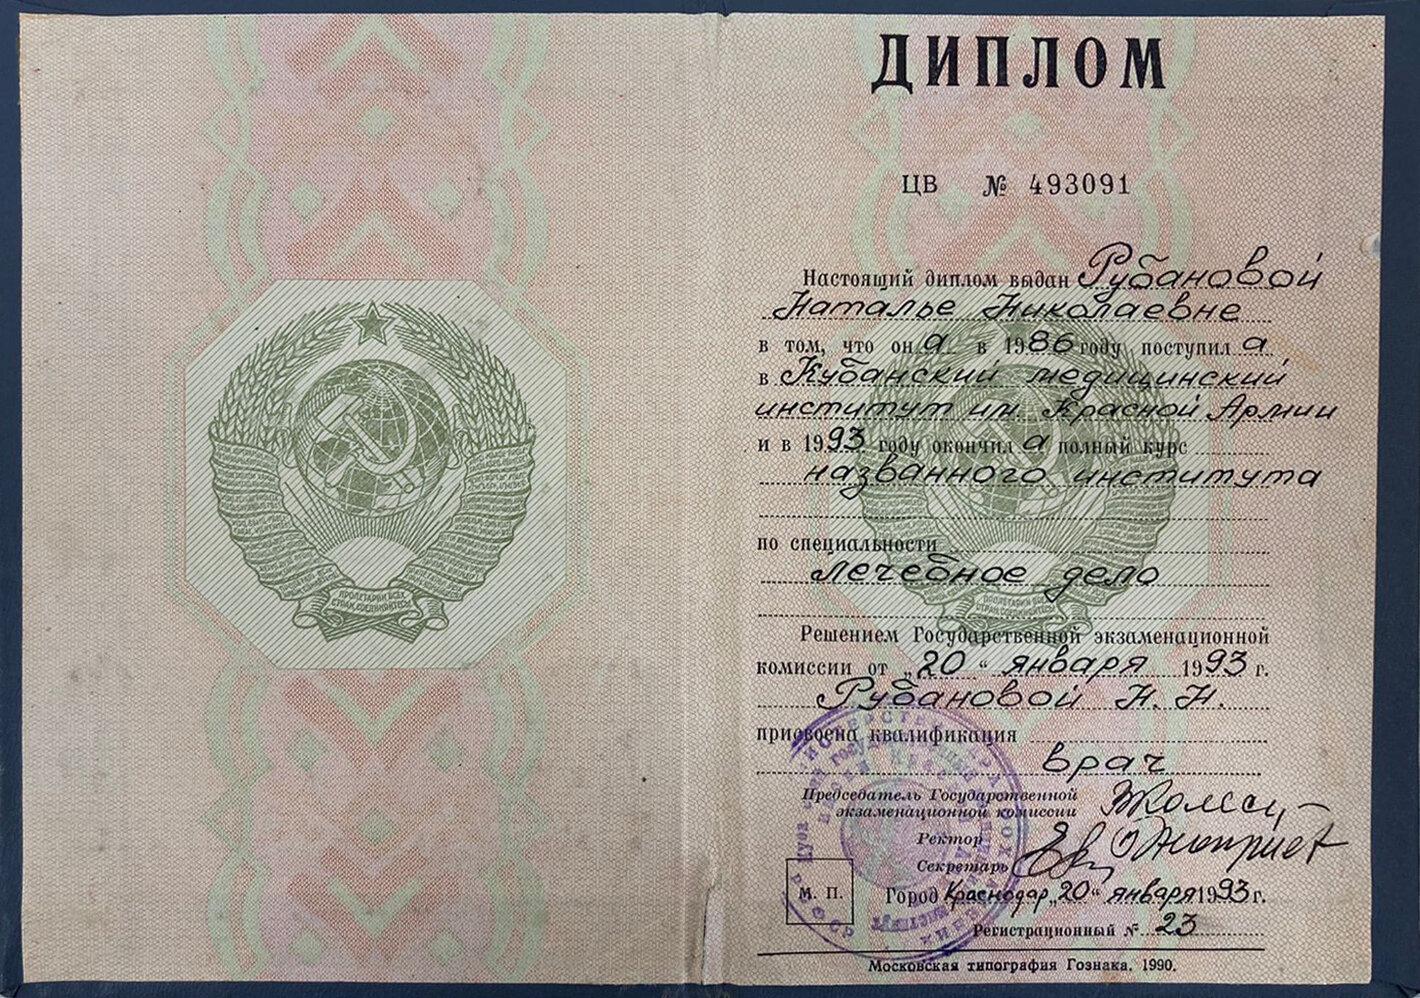 ПРОЛЕТАРИИ ВСЕХ
СТРАН, СОЕДИНЯЙТЕСЬ!
ДИПЛОМ
ЦВ № 493091
Настоящий диплом выдан Рубановой
Наталье Николаевне
в том, что она в 1986 году поступила
в Кубанский медицинский
институт им. Красной Армии
и в 1993 году окончила полный курс
названного института
по специальности
лечебное дело
Решением Государственной экзаменационной
комиссии от „20“ января 1993 г.
Рубановой Н. Н.
присвоена квалификация
врач
Председатель Государственной
экзаменационной комиссии
Ректор
Секретарь
М. П.
Город Краснодар „20“ января 1993 г.
Регистрационный № 23
Московская типография Гознака. 1990.